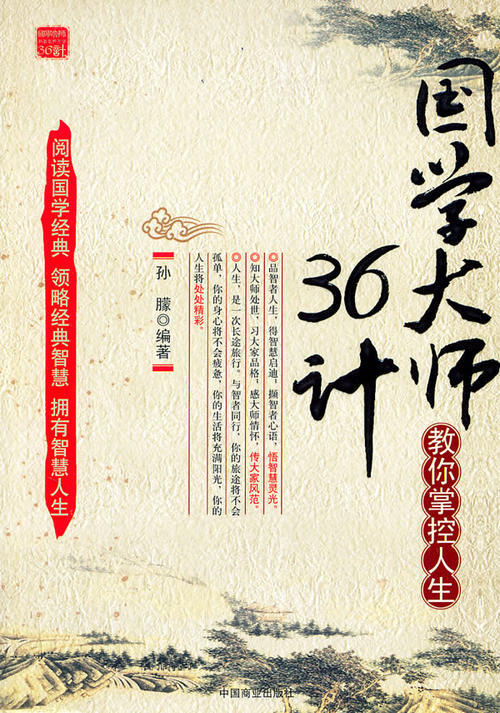 国学大师
36计
教你掌控人生
◎品智者人生，得智慧启迪；撷智者心语，悟智慧灵光。
◎知大师处世，习大家品格；感大师情怀，传大家风范。
◎人生，是一次长途旅行。与智者同行，你的旅途将不会
孤单，你的身心将不会疲惫，你的生活将充满阳光，你的
人生将处处精彩。
孙朦◎编著
阅读国学经典 领略经典智慧 拥有智慧人生
36計
中国商业出版社